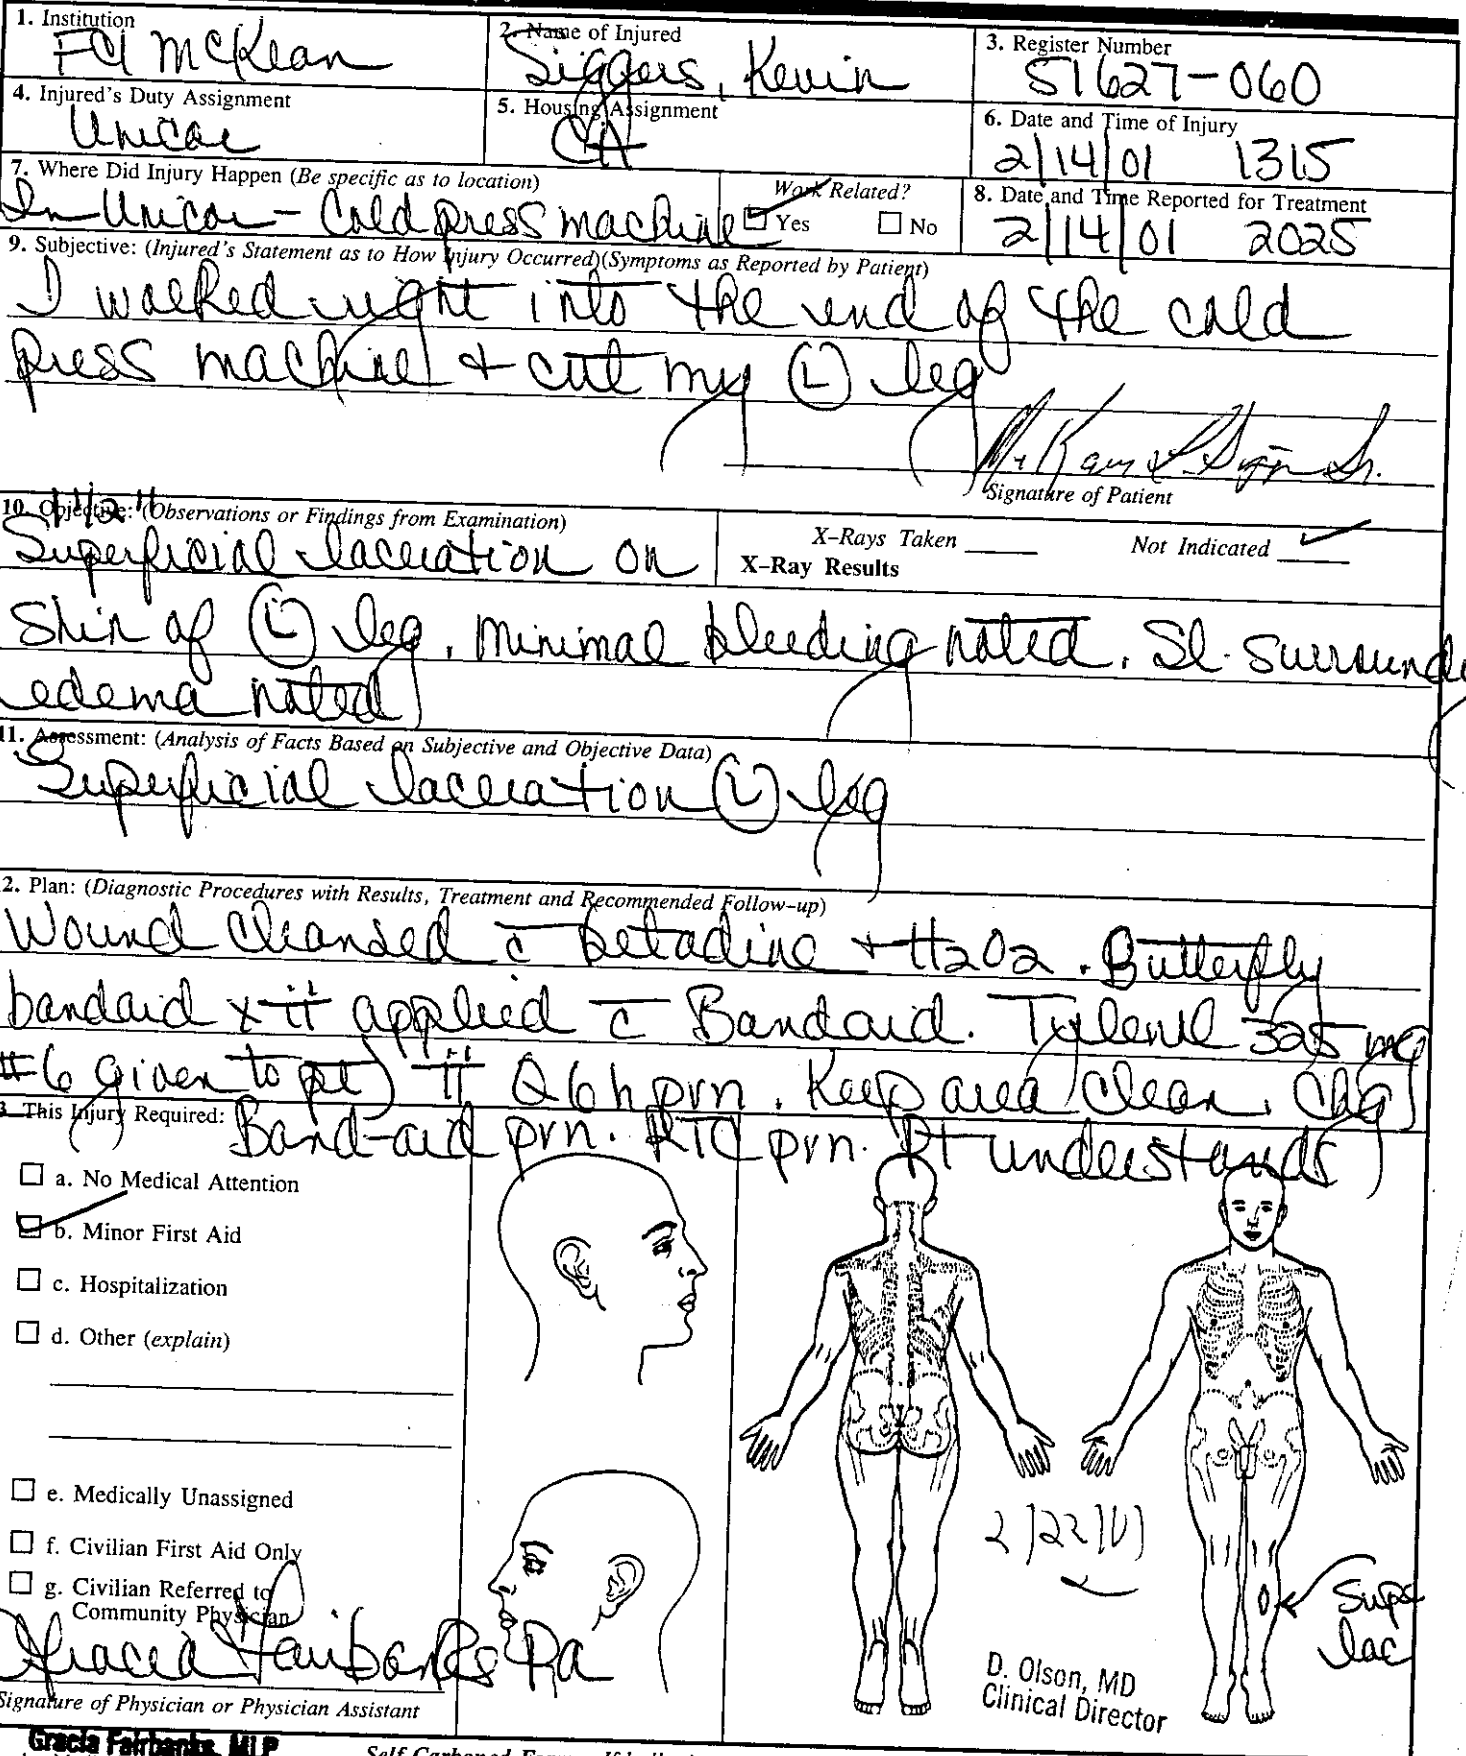 1. Institution
FCI McKean
2. Name of Injured
Siggers, Kevin
3. Register Number
51627-060
4. Injured's Duty Assignment
Unicor
5. Housing Assignment
CA
6. Date and Time of Injury
2/14/01 1315
7. Where Did Injury Happen (Be specific as to location)
In Unicor - Cold press machine
Work Related?
Yes No
8. Date and Time Reported for Treatment
2/14/01 2025
9. Subjective: (Injured's Statement as to How Injury Occurred)(Symptoms as Reported by Patient)
I walked right into the end of the cold
press machine & cut my (L) leg
Signature of Patient
10. Objective: (Observations or Findings from Examination)
1 1/2"
Superficial laceration on
X-Rays Taken Not Indicated ✓
X-Ray Results
Shin of (L) leg. Minimal bleeding noted. Sl. surround
edema noted
11. Assessment: (Analysis of Facts Based on Subjective and Objective Data)
Superficial laceration (L) leg
2. Plan: (Diagnostic Procedures with Results, Treatment and Recommended Follow-up)
Wound cleansed c̄ betadine + H2O2. Butterfly
bandaid x ii applied c̄ Bandaid. Tylenol 325 mg
#6 given to pt) ii Q6h prn. Keep area clean. Chg
3. This Injury Required:
Band-aid prn. RTC prn. Pt understands
a. No Medical Attention
b. Minor First Aid
c. Hospitalization
d. Other (explain)
e. Medically Unassigned
f. Civilian First Aid Only
g. Civilian Referred to
Community Physician
Gracia Fairbanks PA
Signature of Physician or Physician Assistant
Gracia Fairbanks, MLP
2/22/01
Supe
lac
D. Olson, MD
Clinical Director